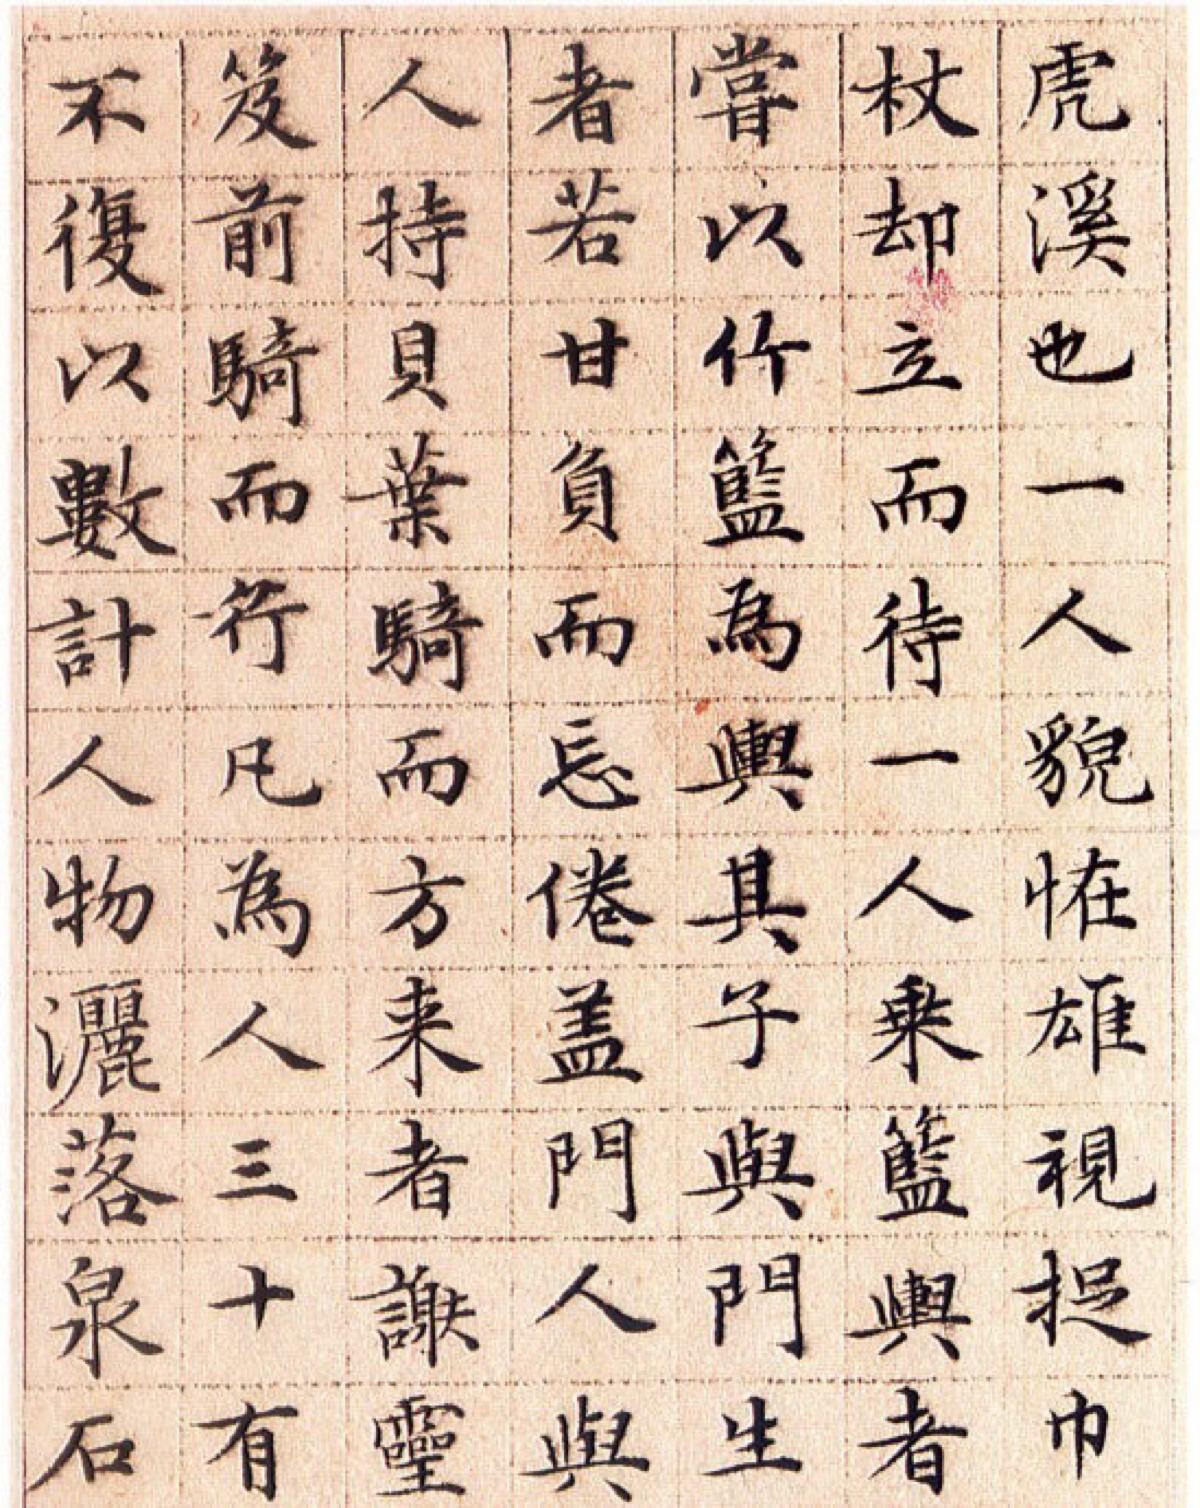 虎溪也一人貌恠雄視捉巾
杖却立而待一人乗籃輿者
甞以竹籃為輿其子與門生
者若甘負而忘倦盖門人與
人持貝葉騎而方来者謝靈
笈前騎而行凡為人三十有
不復以數計人物灑落泉石